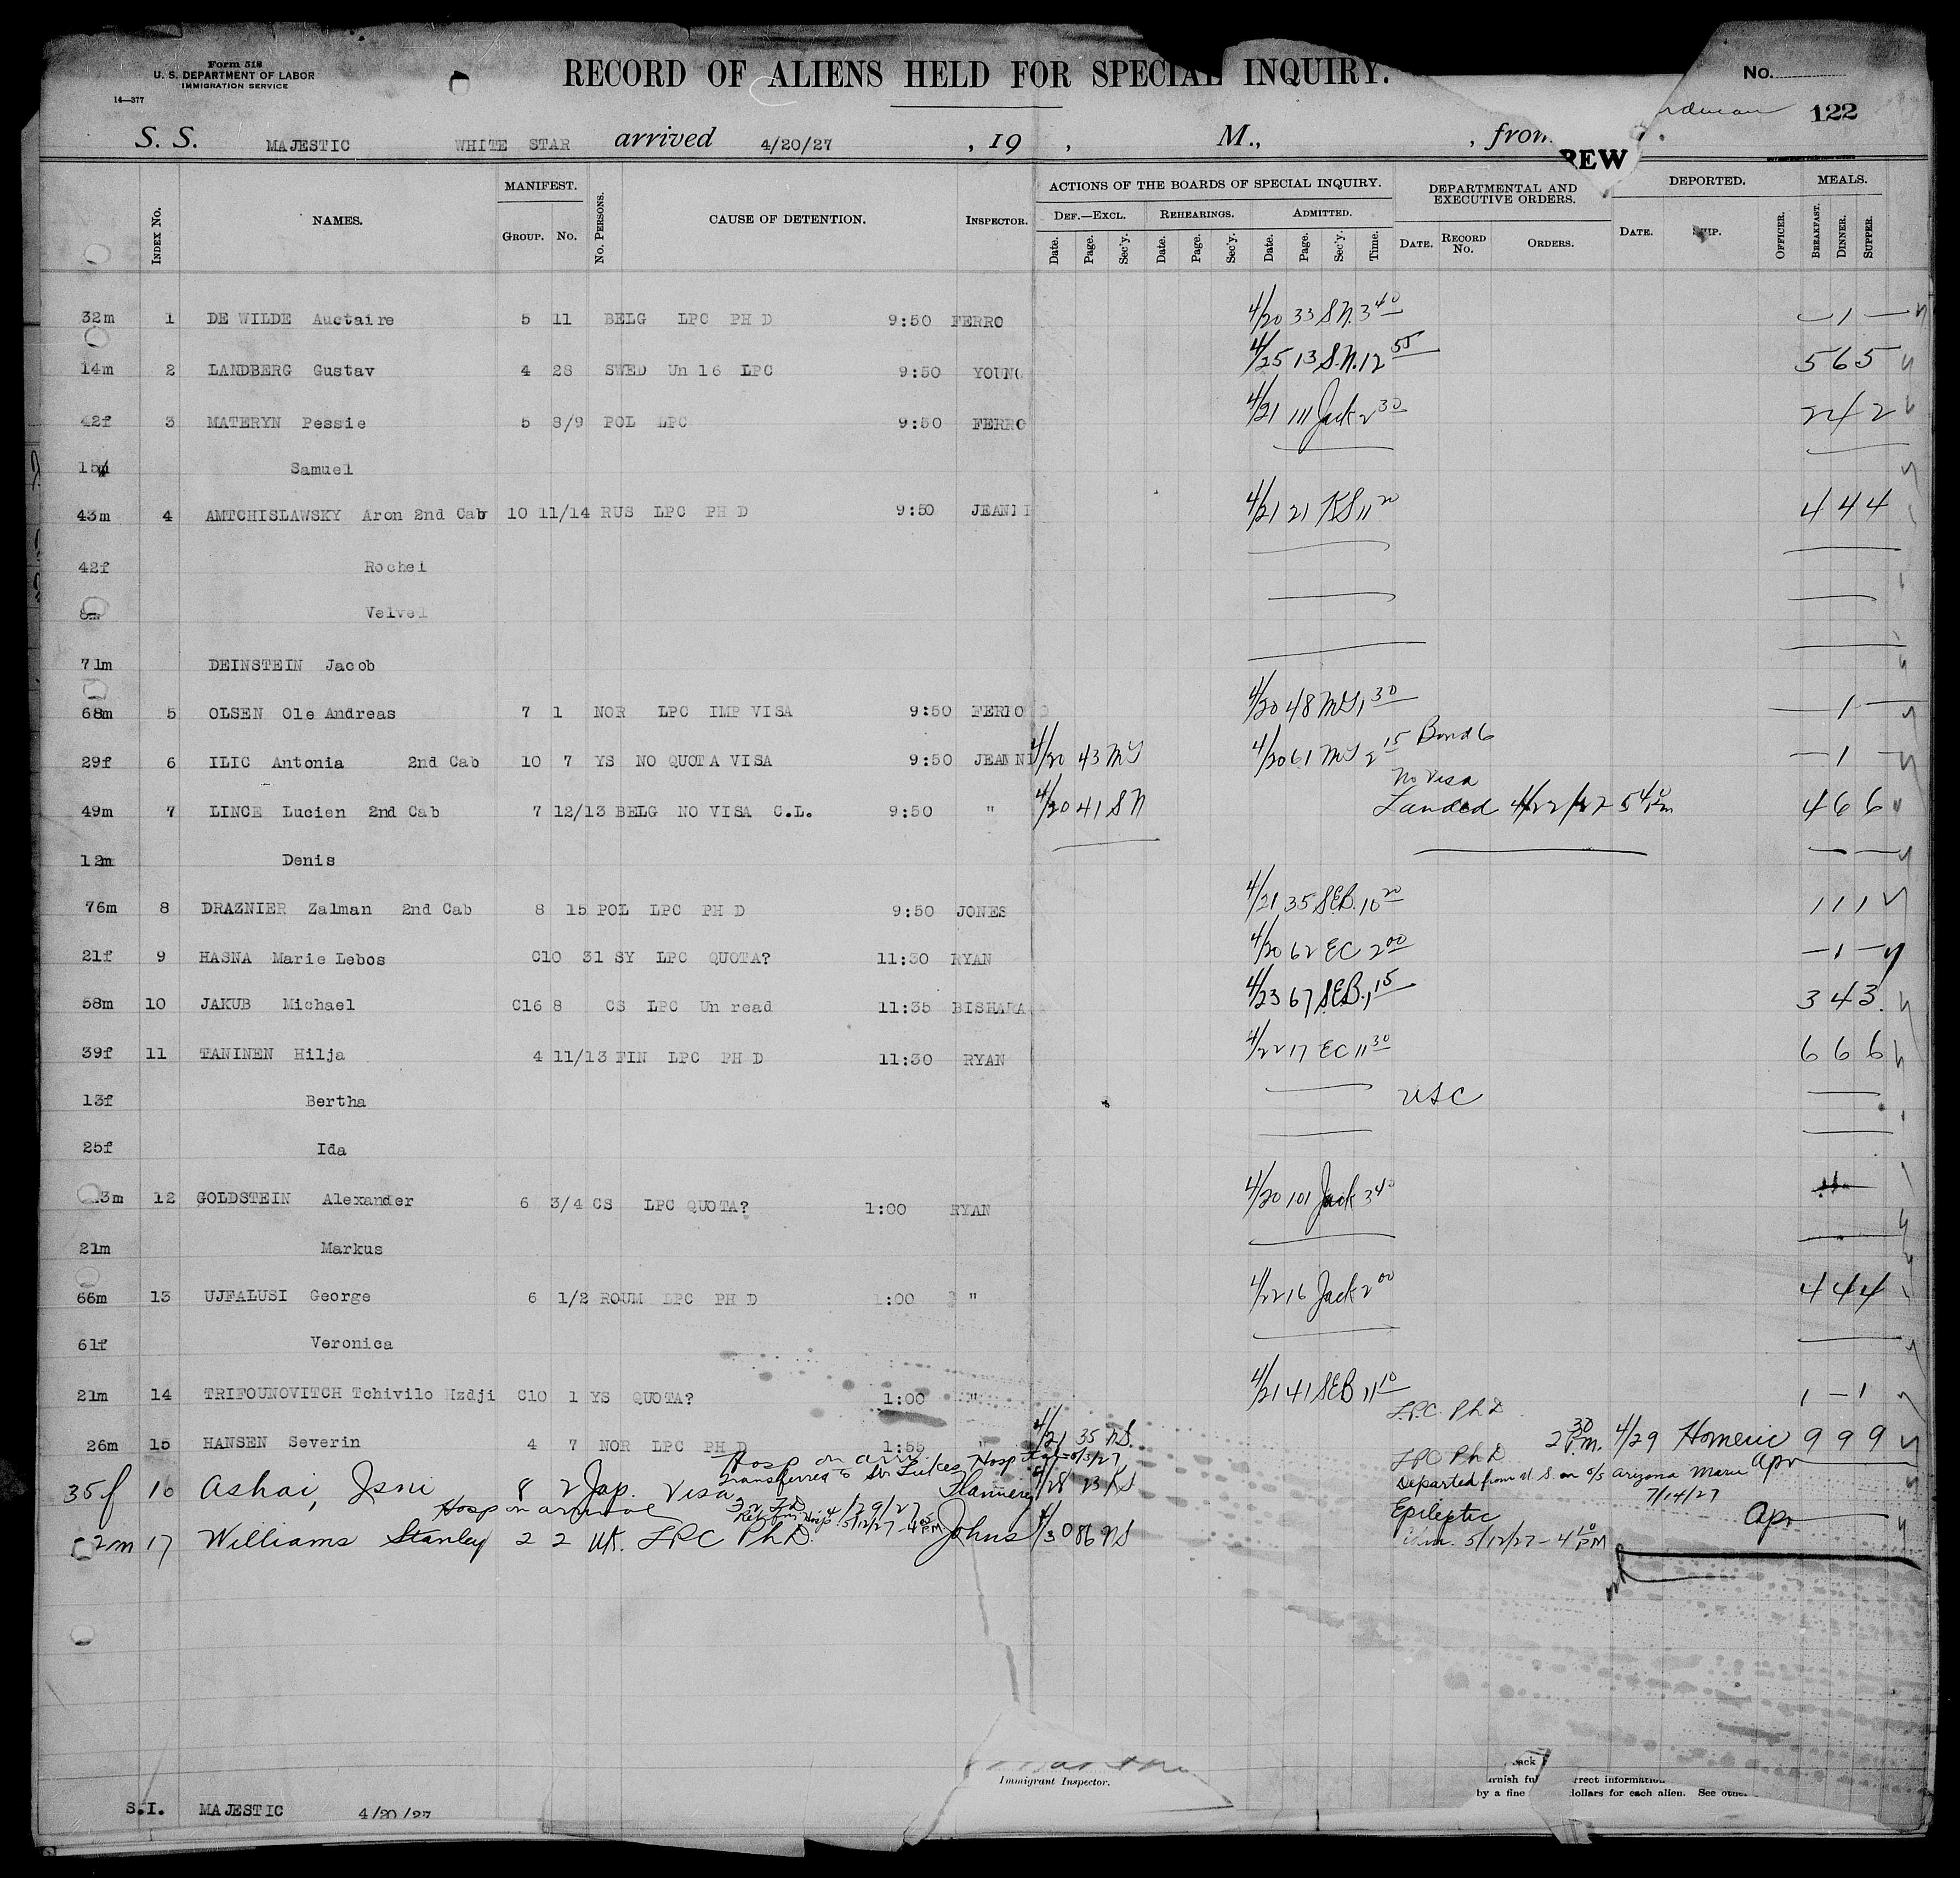 Form 518
U. S. DEPARTMENT OF LABOR
IMMIGRATION SERVICE
14—377
RECORD OF ALIENS HELD FOR SPECIAL INQUIRY.
No.
122
S. S. MAJESTIC WHITE STAR arrived 4/20/27 , 19 , M., , from
REW
Index No. NAMES. MANIFEST. GROUP. No. No. PERSONS. CAUSE OF DETENTION. INSPECTOR. ACTIONS OF THE BOARDS OF SPECIAL INQUIRY. DEF.—EXCL. REHEARINGS. ADMITTED. DEPARTMENTAL AND EXECUTIVE ORDERS. DEPORTED. MEALS.
Date. Page. Sec'y. Date. Page. Sec'y. Date. Page. Sec'y. Time. DATE. RECORD No. ORDERS. DATE. SHIP. OFFICER. BREAKFAST. DINNER. SUPPER.
32m 1 DE WILDE Auctaire 5 11 BELG LPC PH D 9:50 FERRO 4/20 33 S.N. 3 40 — 1 —
14m 2 LANDBERG Gustav 4 28 SWED Un 16 LPC 9:50 YOUNG 4/25 13 S.N. 12 55 5 6 5
42f 3 MATERYN Pessie 5 8/9 POL LPC 9:50 FERRO 4/21 111 Jack 2 30 2 4 2
15m Samuel
43m 4 AMTCHISLAWSKY Aron 2nd Cab 10 11/14 RUS LPC PH D 9:50 JEANNI 4/21 21 KS 11 20 4 4 4
42f Rochel
8m Velvel
71m DEINSTEIN Jacob
68m 5 OLSEN Ole Andreas 7 1 NOR LPC IMP VISA 9:50 FERRO 4/20 48 MY 1 30 — 1 —
29f 6 ILIC Antonia 2nd Cab 10 7 YS NO QUOTA VISA 9:50 JEANNI 4/20 43 MY 4/20 61 MY 2 15 Bond 6 — 1 —
No Visa
49m 7 LINCE Lucien 2nd Cab 7 12/13 BELG NO VISA C.L. 9:50 " 4/20 41 SN Landed 4/22/27 5 40 Pm 4 6 6
12m Denis
76m 8 DRAZNIER Zalman 2nd Cab 8 15 POL LPC PH D 9:50 JONES 4/21 35 SEB. 10 20 1 1 1
21f 9 HASNA Marie Lebos C10 31 SY LPC QUOTA? 11:30 RYAN 4/20 62 EC 2 00 — 1 —
58m 10 JAKUB Michael C16 8 CS LPC Un read 11:35 BISHARA 4/23 67 SEB. 1 15 3 4 3.
39f 11 TANINEN Hilja 4 11/13 FIN LPC PH D 11:30 RYAN 4/22 17 EC 11 30 6 6 6
13f Bertha USC
25f Ida
3m 12 GOLDSTEIN Alexander 6 3/4 CS LPC QUOTA? 1:00 RYAN 4/20 101 Jack 3 40
21m Markus
66m 13 UJFALUSI George 6 1/2 ROUM LPC PH D 1:00 " 4/22 16 Jack 2 00 4 4 4
61f Veronica
21m 14 TRIFOUNOVITCH Tchivilo Hzdji C10 1 YS QUOTA? 1:00 " 4/21 41 SEB 11 10 1 — 1
LPC Ph D
26m 15 HANSEN Severin 4 7 NOR LPC PH D 1:55 " 4/21 35 NS. 2 30 P.m. 4/29 Homeric 9 9 9
Hosp on arr.
LPC Ph D
transferred to St. Lukes Hosp
35f 16 Ashai, Isni 8 2 Jap. Visa Flannery 4/28 23 KS Departed from U. S. on S/S Arizona Maru 7/14/27 Apr
Hosp on arrival 4/29/27
5/12/27 - 4 05 PM
Epileptic
2m 17 Williams Stanley 2 2 UK. LPC Ph.D. Johns 4/30 86 NS 5/12/27 - 4 10 PM Apr
Immigrant Inspector.
by a fine dollars for each alien. See
S.I. MAJESTIC 4/20/27